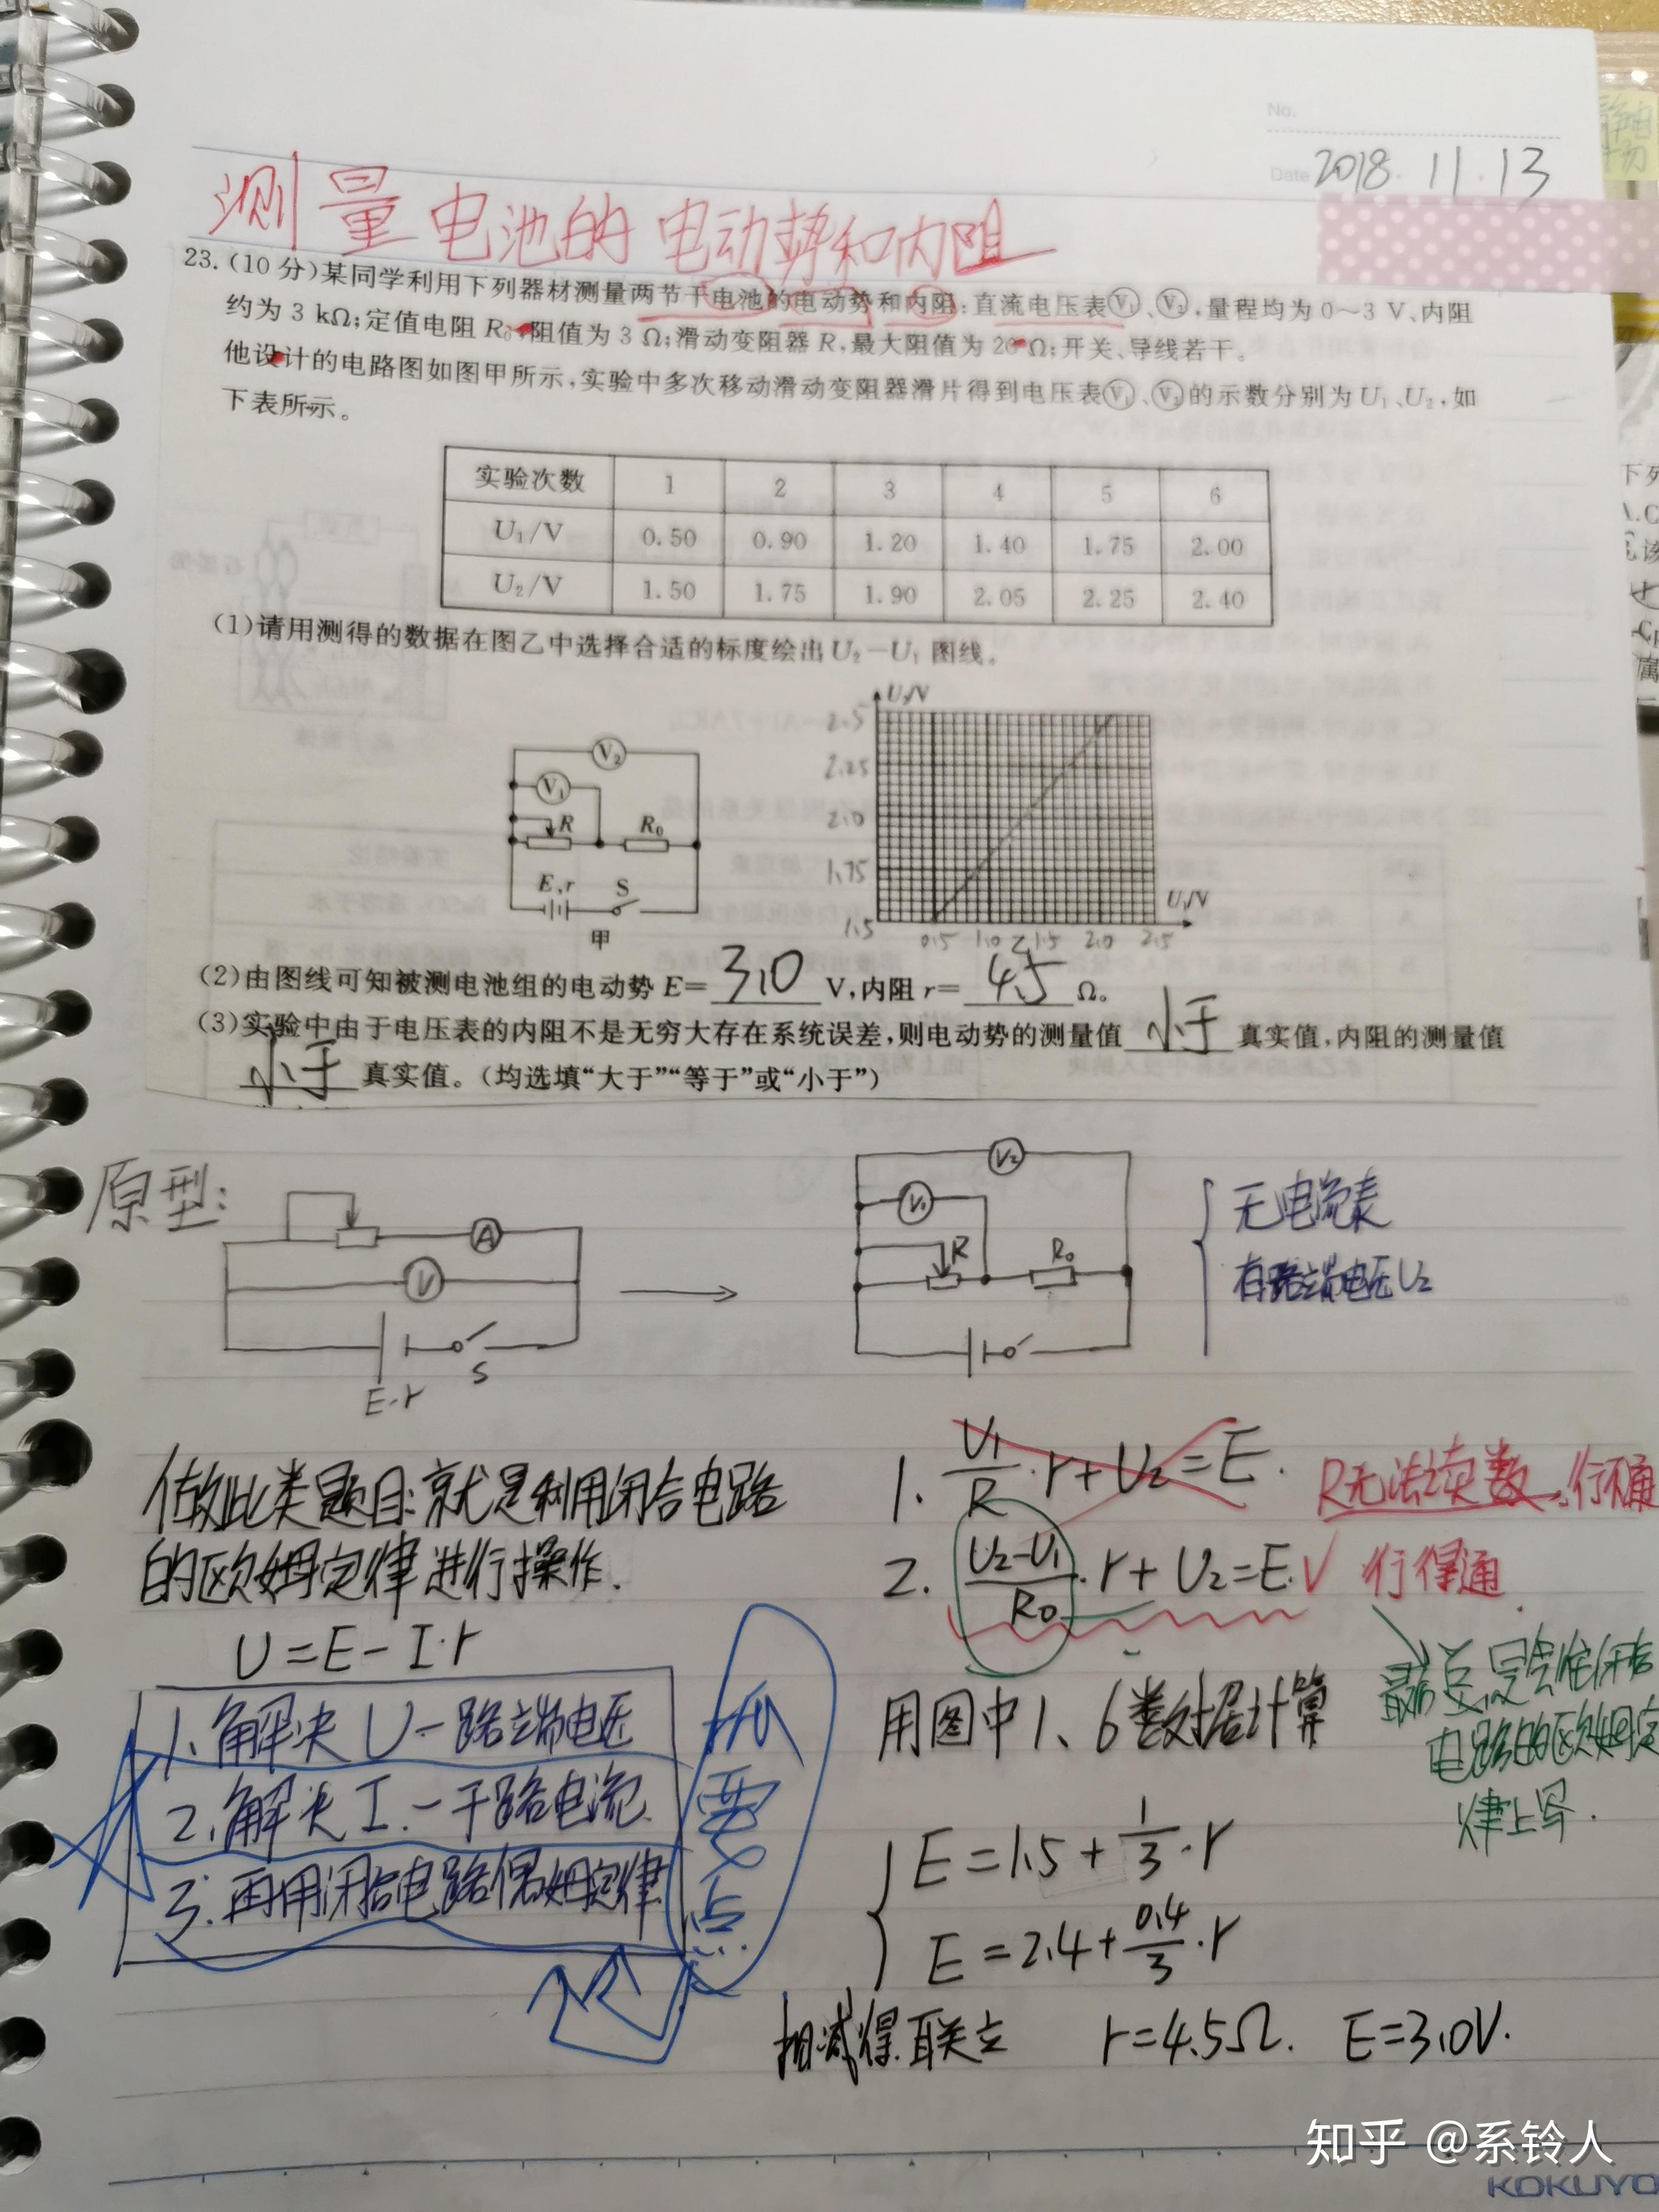 No.
Date 2018.11.13
测量电池的电动势和内阻
23.(10分)某同学利用下列器材测量两节干电池的电动势和内阻:直流电压表V₁、V₂,量程均为0~3 V、内阻
约为3 kΩ;定值电阻R₀,阻值为3 Ω;滑动变阻器R,最大阻值为20 Ω;开关、导线若干。
他设计的电路图如图甲所示,实验中多次移动滑动变阻器滑片得到电压表V₁、V₂的示数分别为U₁、U₂,如
下表所示。
实验次数 1 2 3 4 5 6
U₁/V 0.50 0.90 1.20 1.40 1.75 2.00
U₂/V 1.50 1.75 1.90 2.05 2.25 2.40
(1)请用测得的数据在图乙中选择合适的标度绘出U₂-U₁图线。
V₂
V₁
R R₀
E,r S
甲
U₂/V
2.5
2.25
2.0
1.75
1.5
U₁/V
0.5 1.0 乙 1.5 2.0 2.5
(2)由图线可知被测电池组的电动势E=3.0V,内阻r=4.5Ω。
(3)实验中由于电压表的内阻不是无穷大存在系统误差,则电动势的测量值小于真实值,内阻的测量值
小于真实值。(均选填“大于”“等于”或“小于”)
原型:
A
V
E.r S
V₂
V₁
R R₀
无电流表
有路端电压U₂
做此类题目:就是利用闭合电路
的欧姆定律进行操作.
U=E-I·r
1.解决U-路端电压
2.解决I.-干路电流
3.再用闭合电路偶姆定律
要点
1. U₁/R·r+U₂=E. R无法读数,行不通
2. (U₂-U₁)/R₀·r+U₂=E.√ 行得通
用图中1、6数据计算
电路的欧姆定
律上写.
E=1.5+1/3·r
E=2.4+0.4/3·r
相减得.联立 r=4.5Ω. E=3.0V.
知乎 @系铃人
KOKUYO